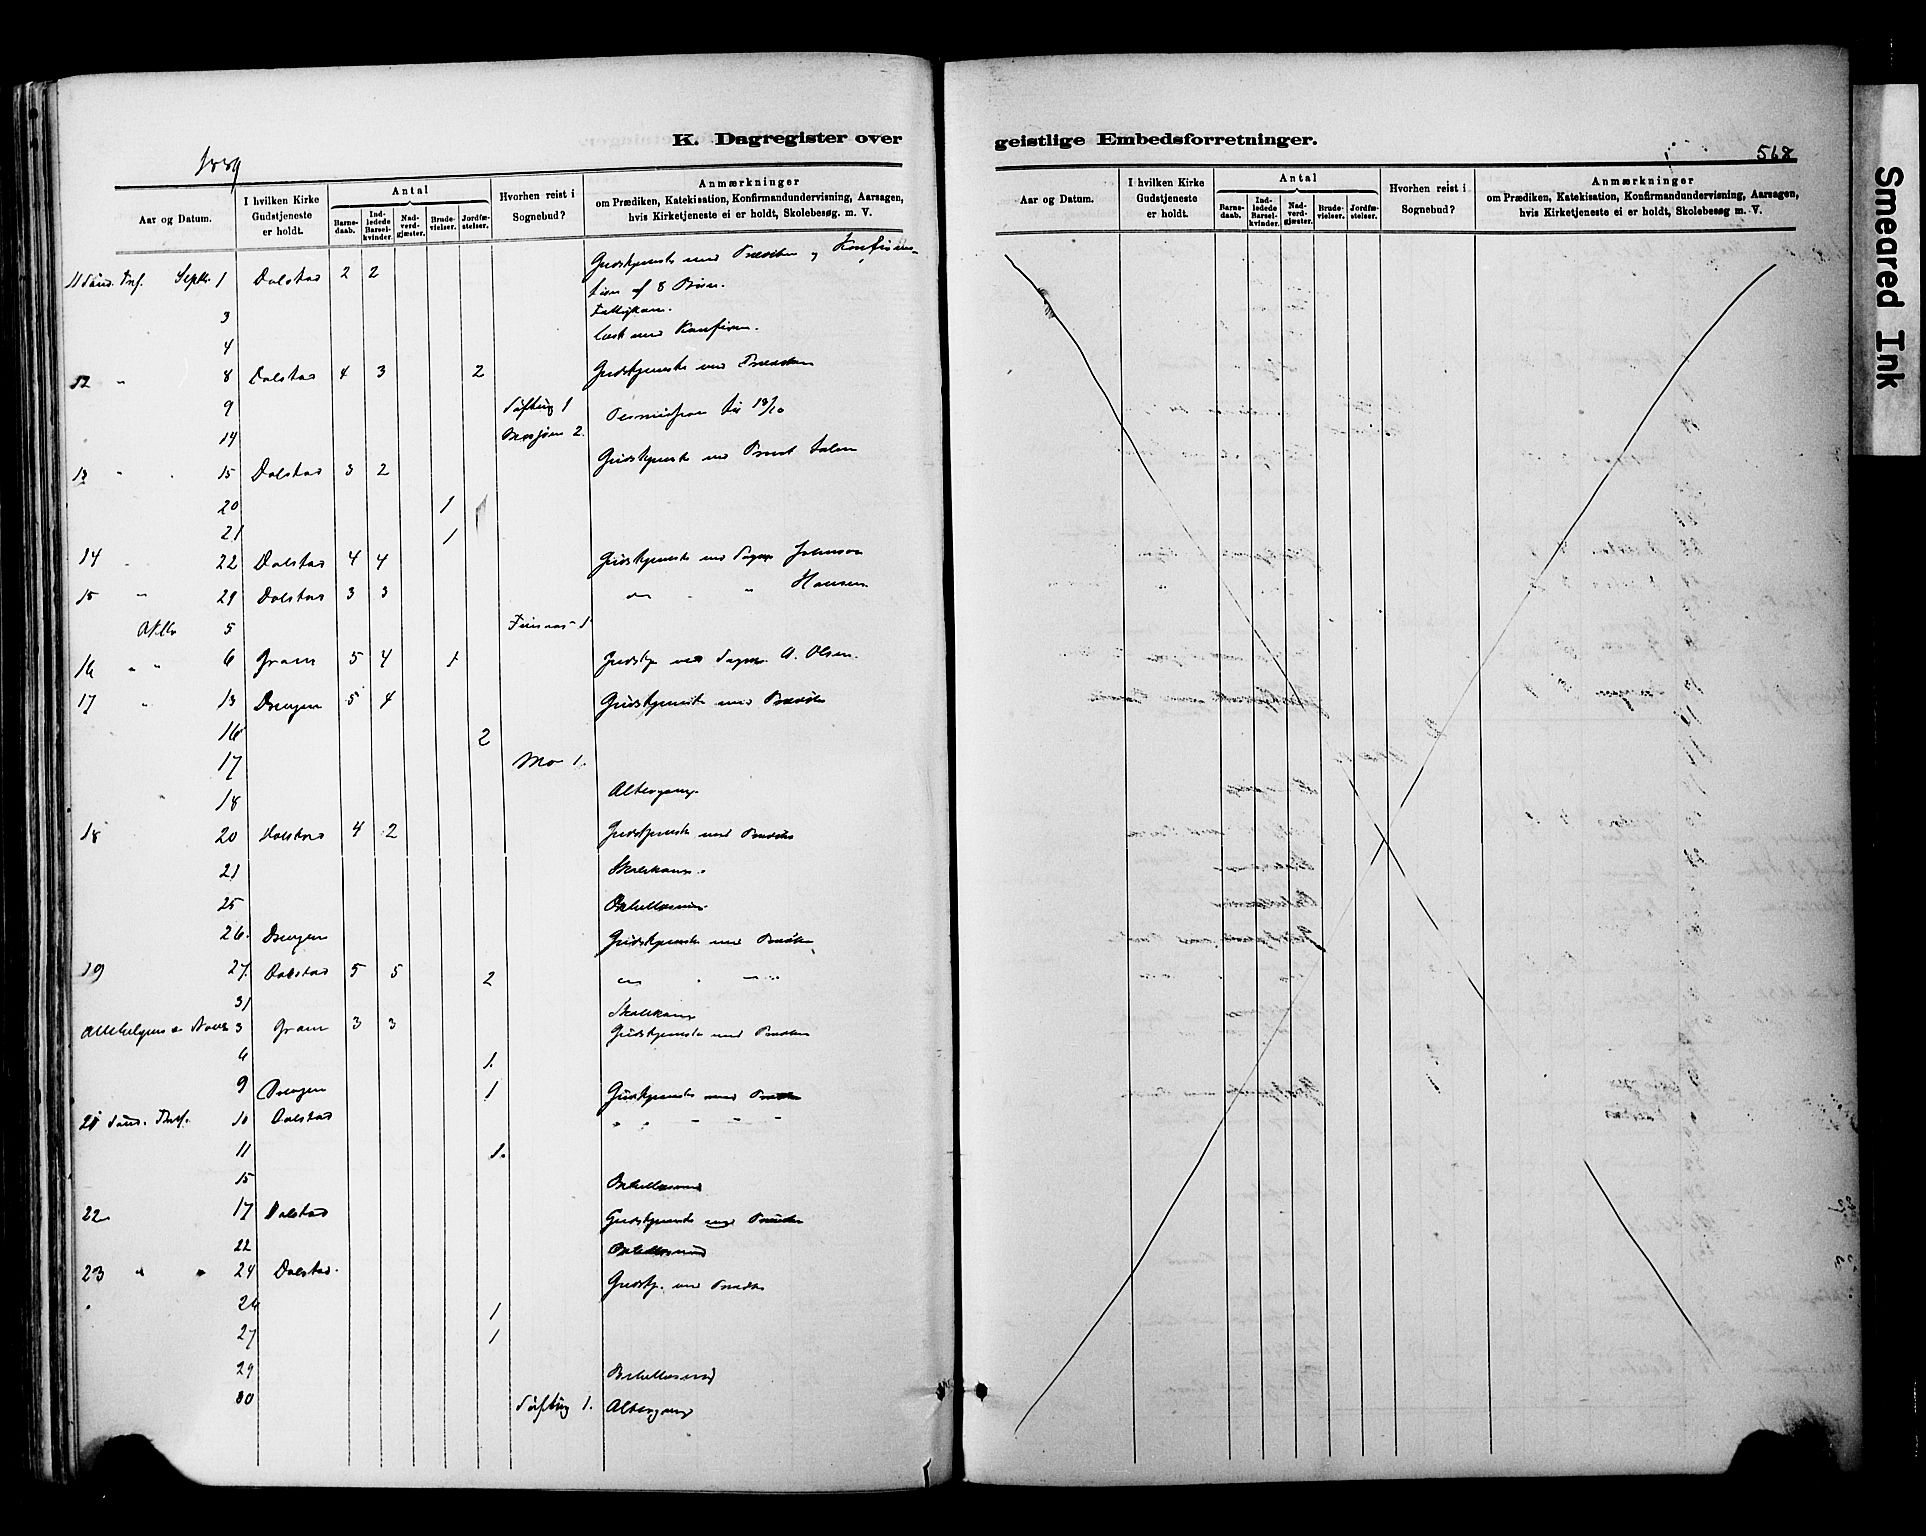 K. Dagregister over
geistlige Embedsforretninger.
1889
568
Smeared Ink
Aar og Datum.
I hvilken Kirke Gudstjeneste er holdt.
Antal
Barnedaab.
Indledede Barselkvinder.
Nadverdgjæster.
Brudevielser.
Jordfæstelser.
Hvorhen reist i Sognebud?
Anmærkninger
om Prædiken, Katekisation, Konfirmandundervisning, Aarsagen,
hvis Kirketjeneste ei er holdt, Skolebesøg. m. V.
11 Sønd. Tref. Septbr. 1 Dolstad 2 2 Gudstjeneste med Prædiken og Konfirma-
tion af 8 Børn.
3
4 Læst med Konfirm.
12 " 8 Dolstad 4 3 2 Gudstjeneste med Prædiken
9 Søfting 1 Permission til 13/10
14 Mosjøen 2.
13 " 15 Dolstad 3 2 Gudstjeneste ved Provst
20 1
21 1
14 22 Dolstad 4 4 Gudstjeneste ved Sogpr. Johnson
15 " 29 Dolstad 3 3 " " Hansen
Oktbr 5 1
16 " " 6 Gram 5 4 1 Gudstj. ved Sogpr. A. Olsen.
17 " 13 Drevjen 5 4 Gudstjeneste med Prædiken
16 2
17 Mo 1.
18 Altergang
18 20 Dolstad 4 2 Gudstjeneste med Prædiken
21 Skolekom.
25 Bibellæsning
26. Drevjen Gudstjeneste med Prædiken
19 27. Dolstad 5 5 2 " " "
31 Skolekom
Allehelgens d. Novbr 3 Gram 3 3 Gudstjeneste med Prædiken
6 1.
9 Drevjen 1 Gudstjeneste med Prædiken
21 Sønd. Tref. 10 Dolstad " " " " "
11 1.
15 Bibellæsning
22 17 Dolstad Gudstjeneste med Prædiken
22 Bibellæsning
23 " " 24 Dolstad. Gudstj. med Prædiken
26 1
27 1
29 Bibellæsning
30 Søfting 1. Altergang
Aar og Datum.
I hvilken Kirke Gudstjeneste er holdt.
Antal
Barnedaab.
Indledede Barselkvinder.
Nadverdgjæster.
Brudevielser.
Jordfæstelser.
Hvorhen reist i Sognebud?
Anmærkninger
om Prædiken, Katekisation, Konfirmandundervisning, Aarsagen,
hvis Kirketjeneste ei er holdt, Skolebesøg m. V.